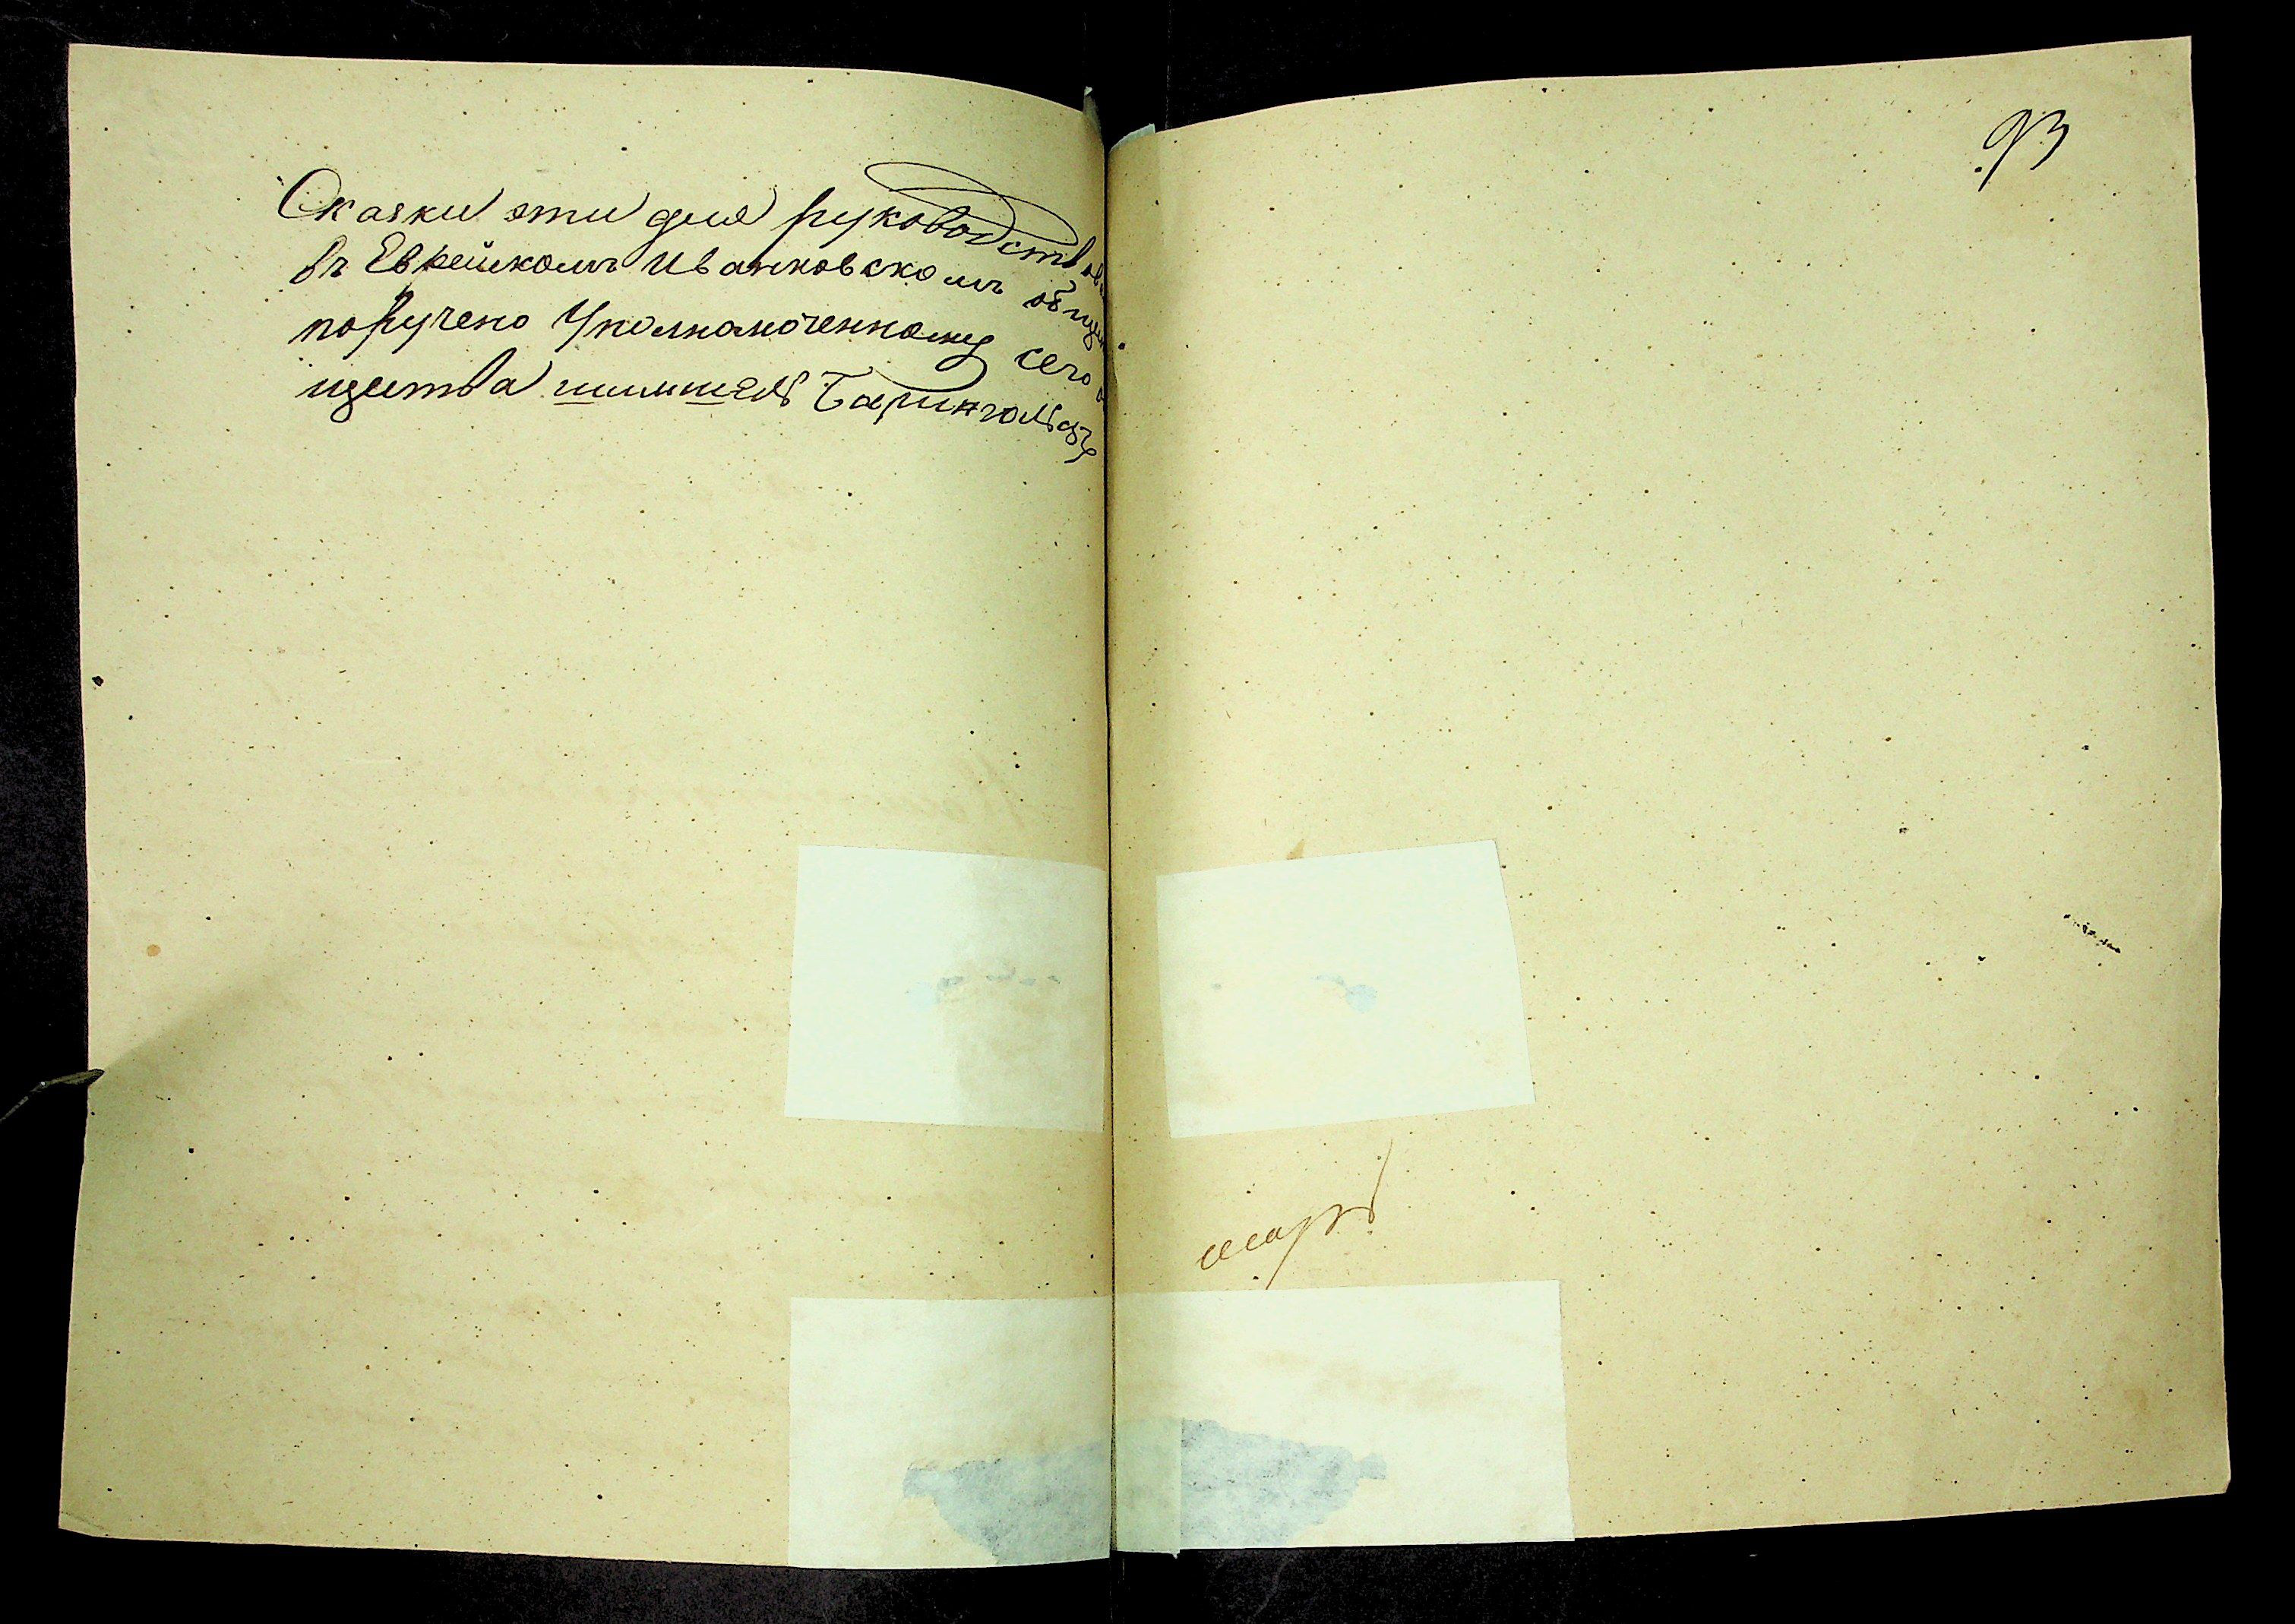 Сказки эти для руководства
въ Еврейскомъ Иванковскомъ общ
поручено Уполномоченному сего о
щества
93